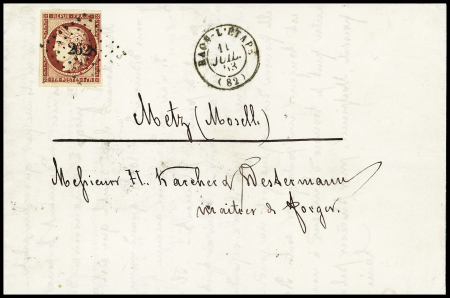 REPUB. FRANC.
2628
RAON-L'ÉTAPE
11
JUIL.
53
(82)
Metz (Moselle)
Messieurs H. Karcher & Westermann
maitres de forges.